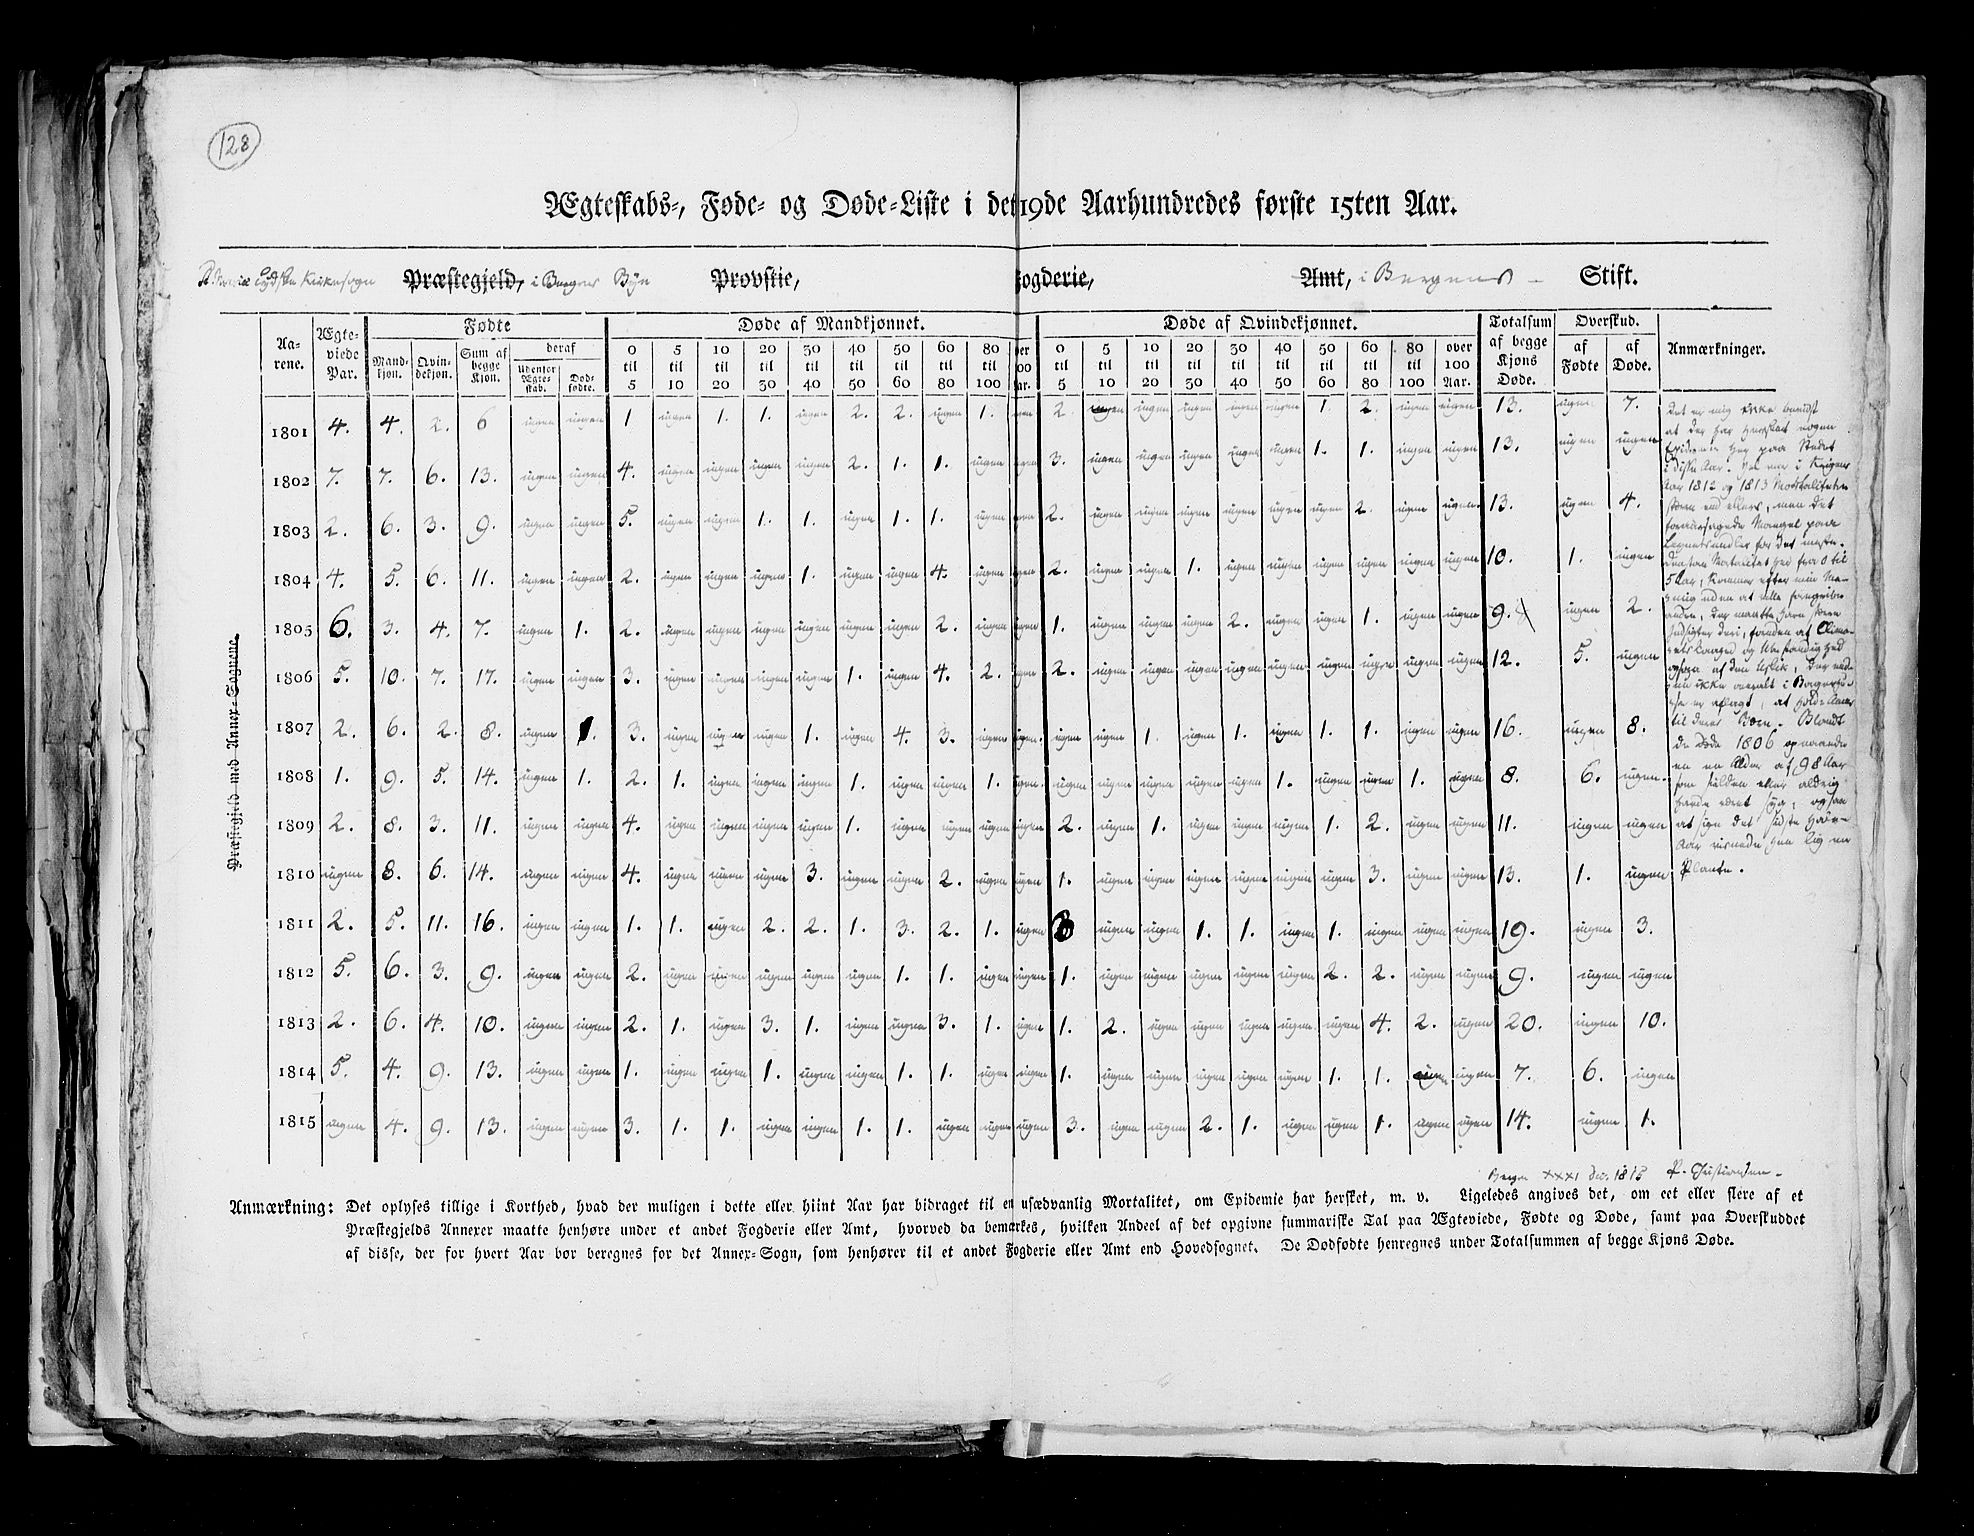 128
Ægteskabs-, Føde- og Døde-Liste i det 19de Aarhundredes første 15ten Aar.
St Mariæ Tydske Kirkesogn Præstegjeld, i Bergens Bye Provstie, Fogderie, Amt, i Bergens Stift.
Præstegjeld med Annex-Sognene.
Aarene. Ægteviede Par. Fødte Døde af Mandkjønnet. Døde af Qvindekjønnet. Totalsum af begge Kjøns Døde. Overskud. Anmærkninger.
Mandkjøn. Qvindekjøn. Sum af begge Kjøn. deraf Udenfor Ægteskab. Dødfødte. 0 til 5 5 til 10 10 til 20 20 til 30 30 til 40 40 til 50 50 til 60 60 til 80 80 til 100 over 100 Aar. 0 til 5 5 til 10 10 til 20 20 til 30 30 til 40 40 til 50 50 til 60 60 til 80 80 til 100 over 100 Aar. af Fødte af Døde.
1801 4. 4. 2. 6 ingen ingen 1. ingen 1. 1. ingen 2. 2. ingen 1. ingen 2. ingen ingen ingen ingen ingen 1. 2. ingen ingen 13. ingen 7.
1802 7. 7. 6. 13. ingen ingen 4. ingen ingen ingen ingen 2. 1. 1. ingen ingen 3. ingen ingen ingen ingen ingen 1. 1. ingen ingen 13. ingen ingen
1803 2. 6. 3. 9. ingen ingen 5. ingen ingen 1. 1. ingen 1. 1. ingen ingen 2. ingen ingen ingen ingen ingen ingen 2. ingen ingen. 13. ingen 4.
1804 4. 5. 6. 11. ingen ingen 2. ingen ingen ingen 1. ingen ingen 4. ingen ingen 2. ingen ingen 1. ingen ingen ingen ingen ingen ingen 10. 1. ingen
1805 6. 3. 4. 7. ingen 1. 2. ingen ingen ingen ingen ingen ingen 2. ingen ingen 1. ingen ingen ingen 2. ingen ingen 1. ingen ingen 9. ingen 2.
1806 5. 10. 7. 17. ingen ingen 3. ingen ingen ingen ingen 1. ingen 4. 2. ingen 2. ingen ingen ingen ingen ingen ingen ingen ingen ingen 12. 5. ingen
1807 2. 6. 2. 8. ingen 1. 3. ingen ingen ingen 1. ingen 4. 3. ingen ingen. ingen ingen 1. ingen 1. ingen 1. 1. ingen ingen 16. ingen 8.
1808 1. 9. 5. 14. ingen 1. 2. 1. ingen ingen ingen 1. ingen ingen 1. ingen. ingen ingen ingen ingen ingen 1. ingen ingen 1. ingen 8. 6. ingen.
1809 2. 8. 3. 11. ingen ingen 4. ingen ingen ingen ingen 1. ingen ingen ingen ingen 2. ingen 1. ingen ingen ingen 1. 2. ingen ingen 11. ingen ingen
1810 ingen 8. 6. 14. ingen ingen 4. ingen ingen ingen 3. ingen ingen 2. ingen ingen 1. ingen ingen ingen ingen ingen ingen 3. ingen ingen 13. 1. ingen
1811 2. 5. 11. 16. ingen ingen 1. 1. ingen 2. 2. 1. 3. 2. 1. ingen 3 ingen ingen 1. 1. ingen 1. ingen ingen ingen 19. ingen 3.
1812 5. 6. 3. 9. ingen ingen 2. ingen ingen ingen ingen ingen 1. 1. ingen ingen 1. ingen ingen ingen ingen ingen 2. 2. ingen ingen 9. ingen ingen
1813 2. 6. 4. 10. ingen ingen 2. 1. ingen 3. 1. ingen ingen 3. 1. ingen 1. 2. ingen ingen ingen ingen ingen 4. 2. ingen 20. ingen 10.
1814 5. 4. 9. 13. ingen ingen 1. ingen ingen 1. ingen ingen 1. 1. ingen ingen 1. ingen ingen ingen ingen ingen 1. 1. ingen ingen 7. 6. ingen
1815 ingen 4. 9. 13. ingen ingen 3. 1. 1. ingen ingen 1. 1. ingen ingen ingen 3. ingen ingen 2. 1. ingen ingen 1. ingen ingen 14. ingen 1.
Det er mig ikke bevidst
at der har hersket nogen
Epidemie her paa Stedet
i disse Aar. Vel var i Krigens
Aar 1812 og 1813 Mortaliteten
større end ellers, men det
foraarsagede Mangel paa
5 Aar, kommer efter min Me-
til deres Børn. Blandt
de Døde 1806 opnaaede
en en Alder af 98 Aar
som sielden eller aldrig
havde været syg, og saa
at sige det sidste Halv-
Aar visnede hen lig en
Plante.
Bergen XXXI Dec. 1815
Anmærkning: Det oplyses tillige i Korthed, hvad der muligen i dette eller hiint Aar har bidraget til en usædvanlig Mortalitet, om Epidemie har hersket, m. v. Ligeledes angives det, om eet eller flere af et
Præstegjelds Annexer maatte henhøre under et andet Fogderie eller Amt, hvorved da bemærkes, hvilken Andeel af det opgivne summariske Tal paa Ægteviede, Fødte og Døde, samt paa Overskuddet
af disse, der for hvert Aar bør beregnes for det Annex-Sogn, som henhører til et andet Fogderie eller Amt end Hovedsognet. De Dødfødte henregnes under Totalsummen af begge Kjøns Døde.